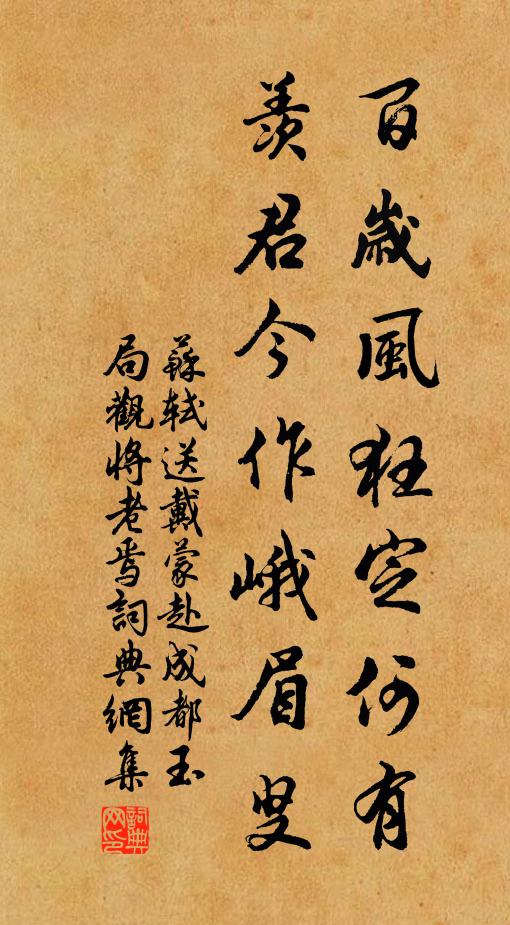 百歲風狂定何有
羨君今作峨眉叟
蘇軾送戴蒙赴成都玉
局觀將老焉詞典網集
詞典网印